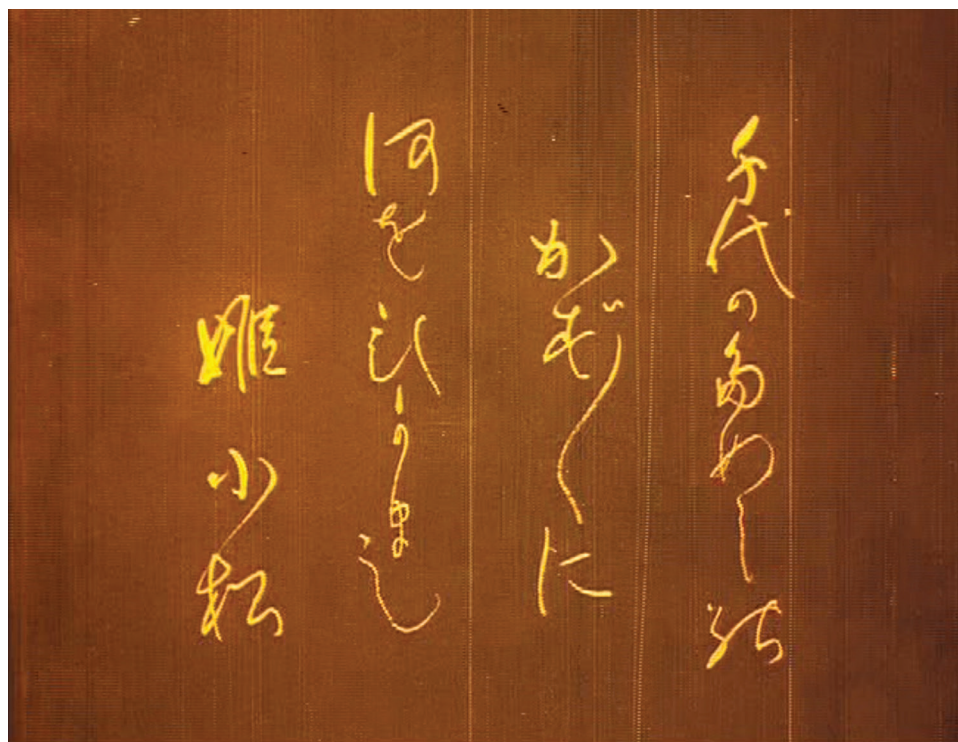 千代のためしの
かず〱に
何をひかまし
姫小松